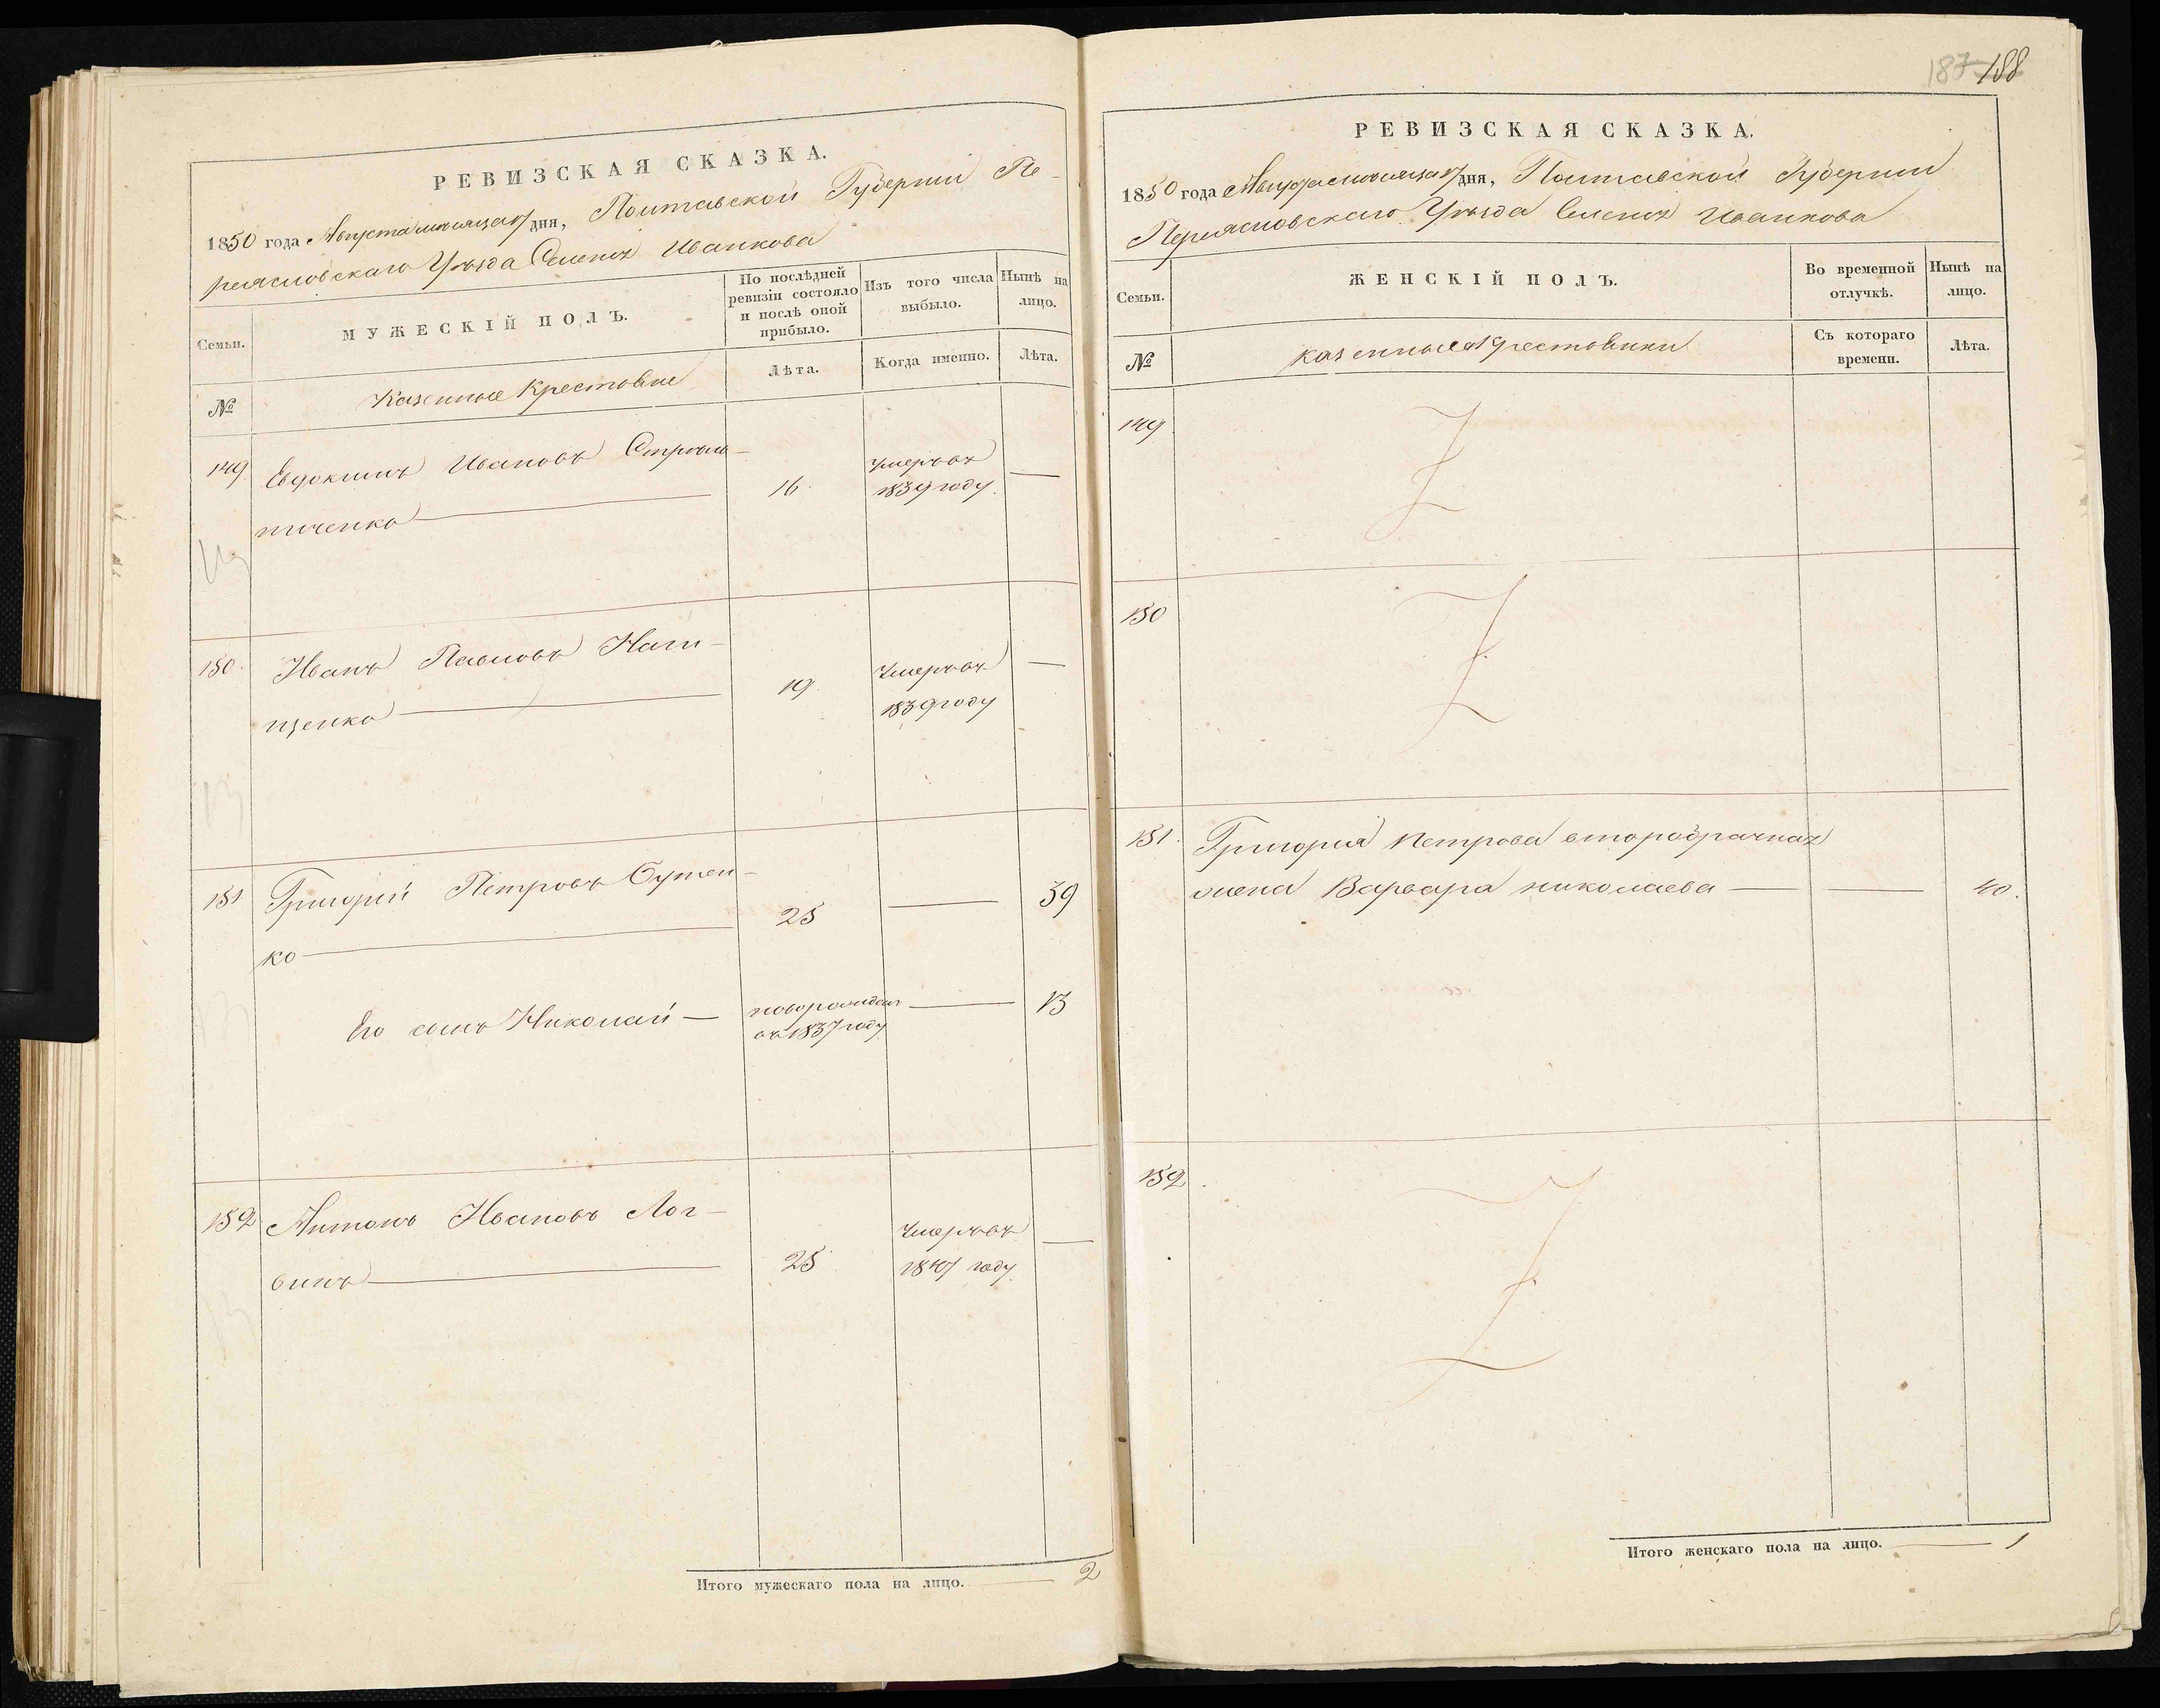 РЕВИЗСКАЯ СКАЗКА.
1850 года Августа месяца дня, Полтавской Губернии Пе-
реясловскаго Уезда Селения Иванкова
Семьи.
МУЖЕСКІЙ ПОЛЪ.
По послѣдней
ревизіи состояло
и послѣ оной
прибыло.
Изъ того числа
выбыло.
Нынѣ на
лицо.
№
Казенные
Лѣта.
Когда именно.
Лѣта.
149
Евдокимъ Ивановъ Стрель-
ниченко
16
умеръ въ
1839 году.
150.
Иванъ Павловъ Нали-
щенко
19.
Умеръ въ
1839 году
151
Григорий Петровъ Сутен-
ко
25
39
Его сынъ Николай
новорожден
въ 1837 году
13
152
Антонъ Ивановъ Лог-
винъ
25
Умеръ въ
1847 году.
Итого мужескаго пола на лицо. 2
187 188
РЕВИЗСКАЯ СКАЗКА.
1850 года Августа месяца дня, Полтавской Губернии
Переясловскаго Уезда Селения Иванкова
Семьи.
ЖЕНСКІЙ ПОЛЪ.
Во временной
отлучкѣ.
Нынѣ на
лицо.
№
казенные
Съ котораго
времени.
Лѣта.
149
150
151.
Григория Петрова второбрачная
жена Варвара николаева
40.
152
Итого женскаго пола на лицо. 1